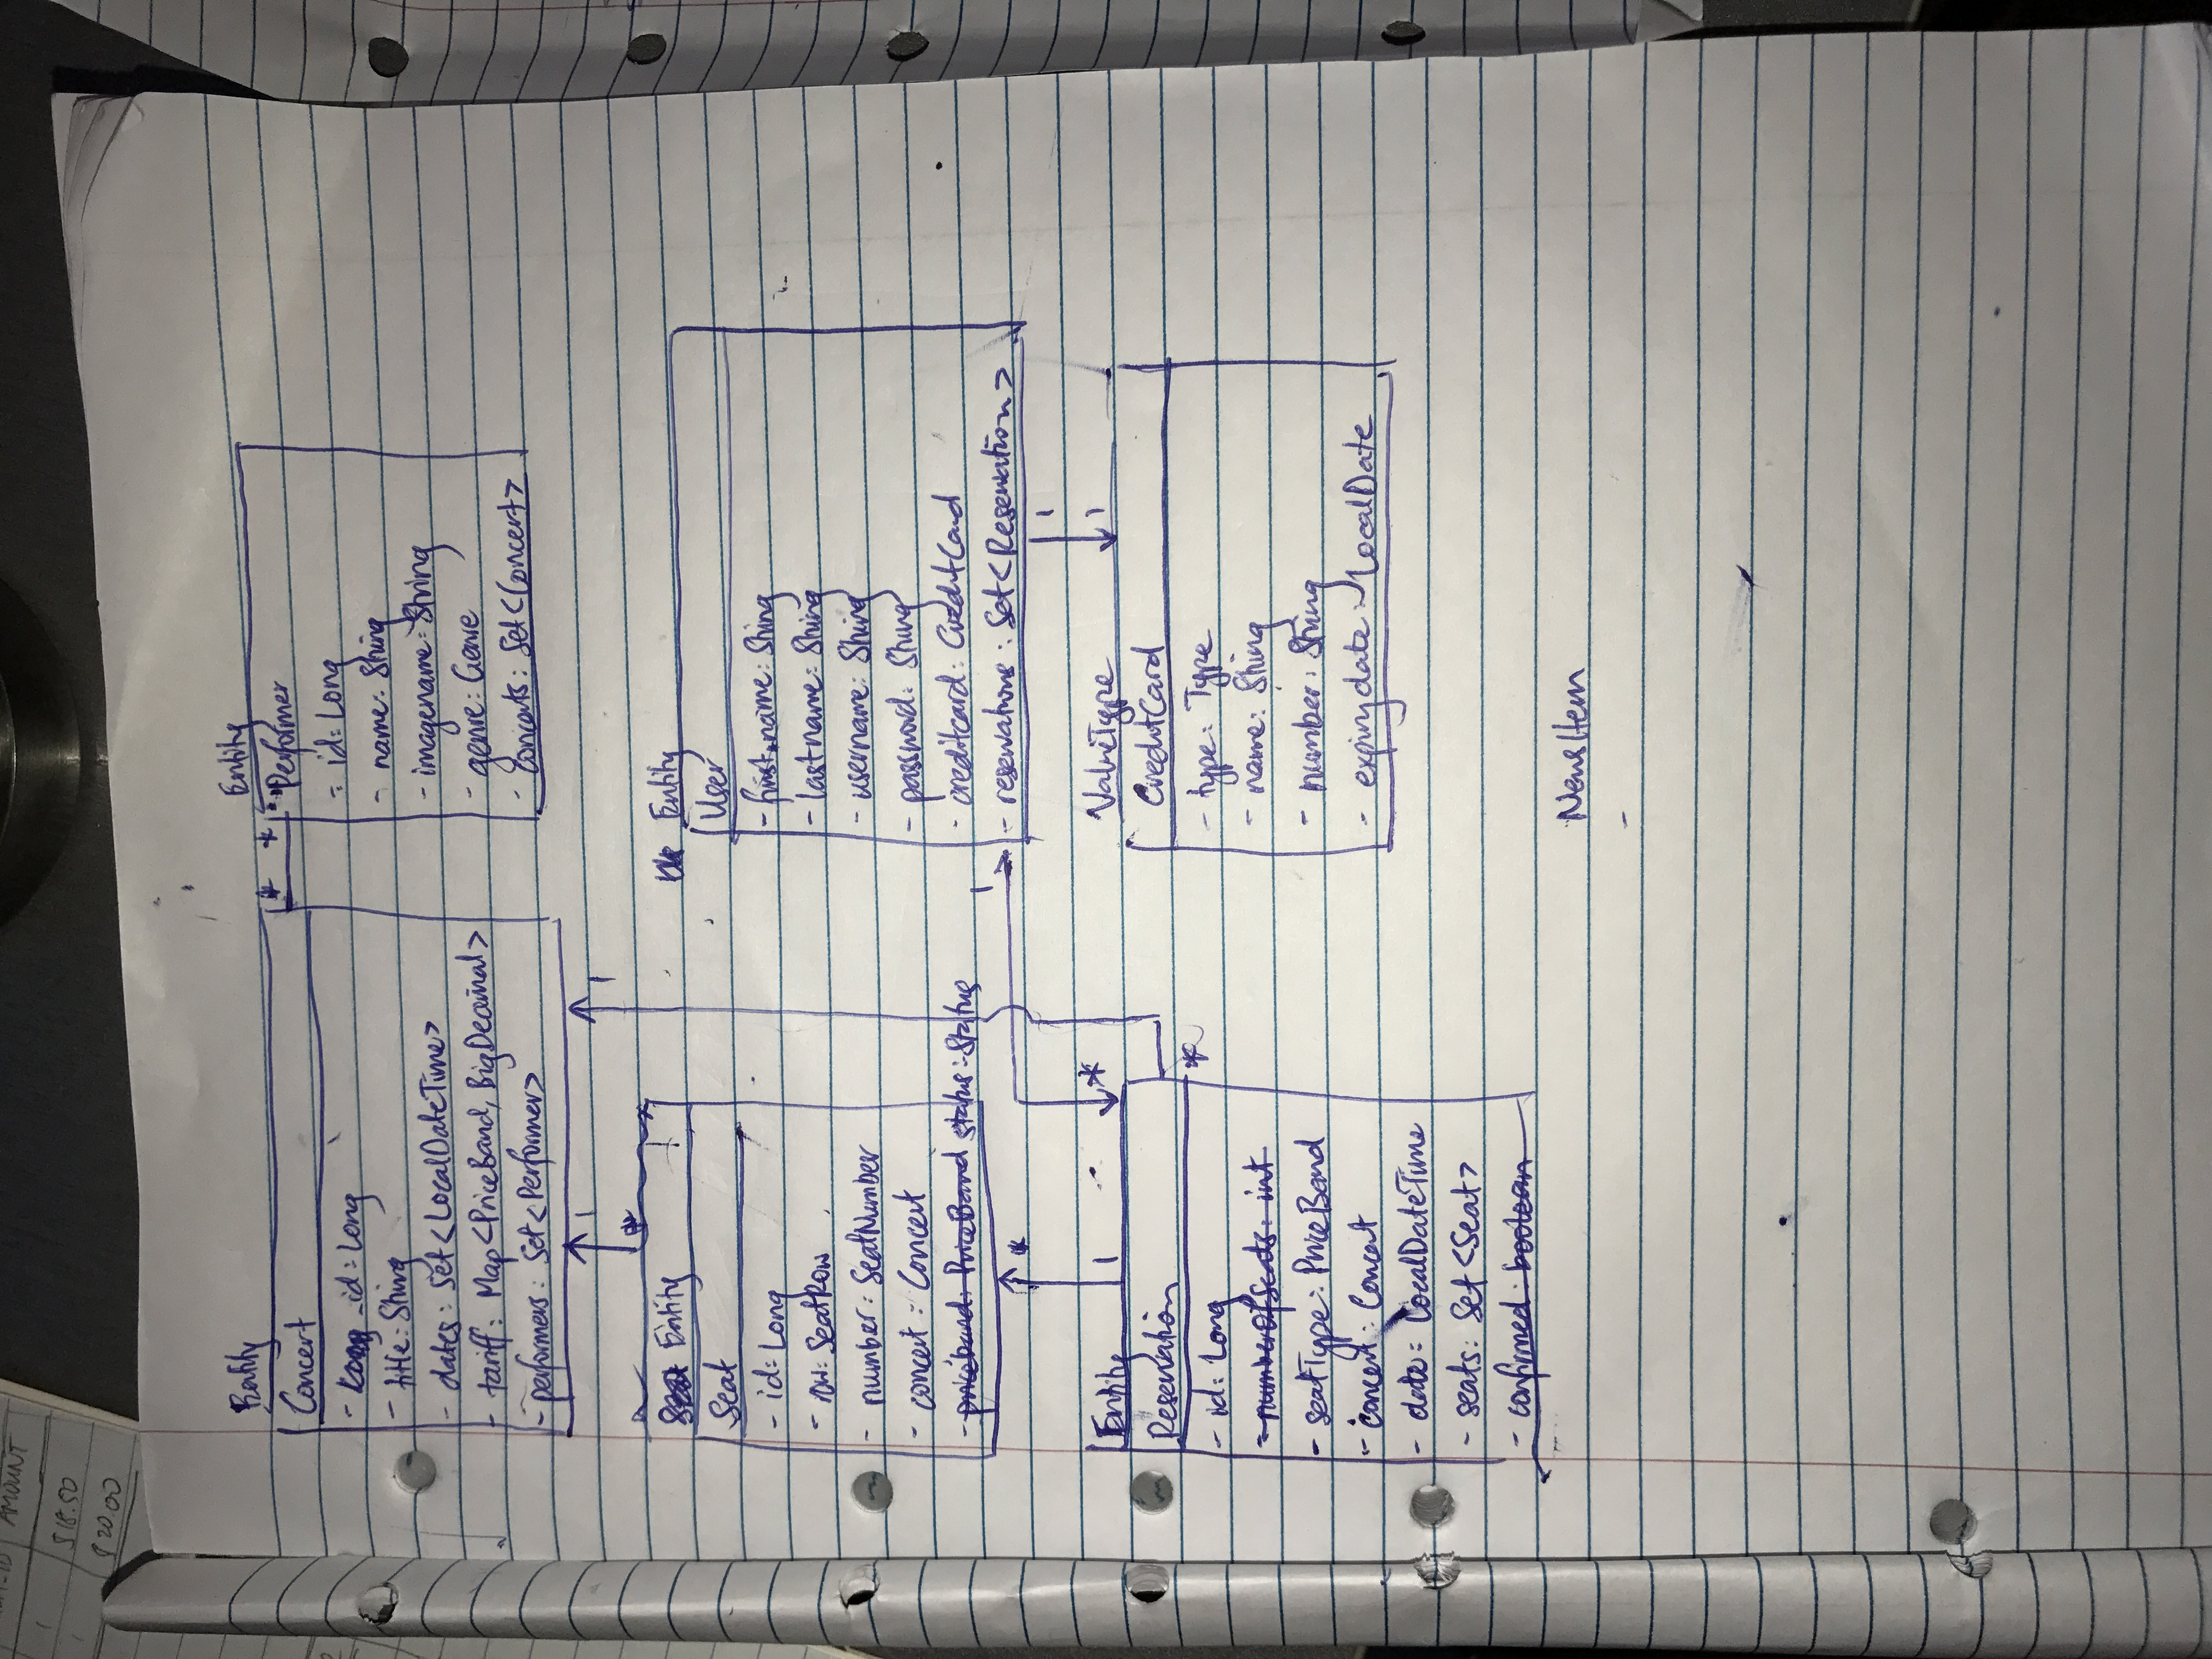 AMOUNT
1
$18.50
$20.00
Entity
Concert
- id: Long
- title: String
- dates: Set<LocalDateTime>
- tariff: Map<PriceBand, BigDecimal>
- performers: Set<Performer>
* *
Entity
Performer
- id: Long
- name: String
- imagename: String
- genre: Genre
- concerts: Set<Concert>
1
*
1
Entity
Seat
- id: Long
- row: SeatRow
- number: SeatNumber
- concert: Concert
- priceband: PriceBand status: Status
Entity
User
- first name: String
- lastname: String
- username: String
- password: String
- creditcard: CreditCard
- reservations: Set<Reservation>
1
*
1
*
1
1
Entity
Reservation
*
- id: Long
- numberOfSeats: int
- seatType: PriceBand
- concert: Concert
- date: LocalDateTime
- seats: Set<Seat>
- confirmed: boolean
ValueType
CreditCard
- type: Type
- name: String
- number: String
- expirydate: LocalDate
NewsItem
-